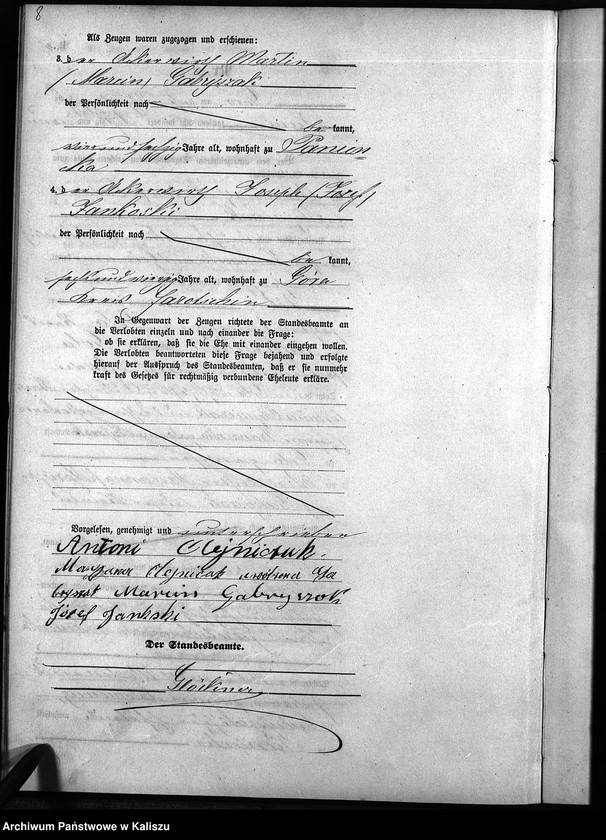 8
Als Zeugen waren zugezogen und erschienen:
3. der Ackerwirth Martin
(Marcin) Gabryszak
der Persönlichkeit nach
be kannt,
vierundsechzig Jahre alt, wohnhaft zu Panien-
ka
4. der Ackerwirth Joseph (Józef)
Jankoski
der Persönlichkeit nach
be kannt,
sechsundvierzig Jahre alt, wohnhaft zu Góra
Kreis Jarotschin
In Gegenwart der Zeugen richtete der Standesbeamte an
die Verlobten einzeln und nach einander die Frage:
ob sie erklären, daß sie die Ehe mit einander eingehen wollen.
Die Verlobten beantworteten diese Frage bejahend und erfolgte
hierauf der Ausspruch des Standesbeamten, daß er sie nunmehr
kraft des Gesetzes für rechtmäßig verbundene Eheleute erkläre.
Vorgelesen, genehmigt und unterschrieben
Antoni Olejniczak.
Maryanna Olejniczak Ga
Marcin Gabryszak
Józef Jankski
Der Standesbeamte.
Glöckner
Archiwum Państwowe w Kaliszu